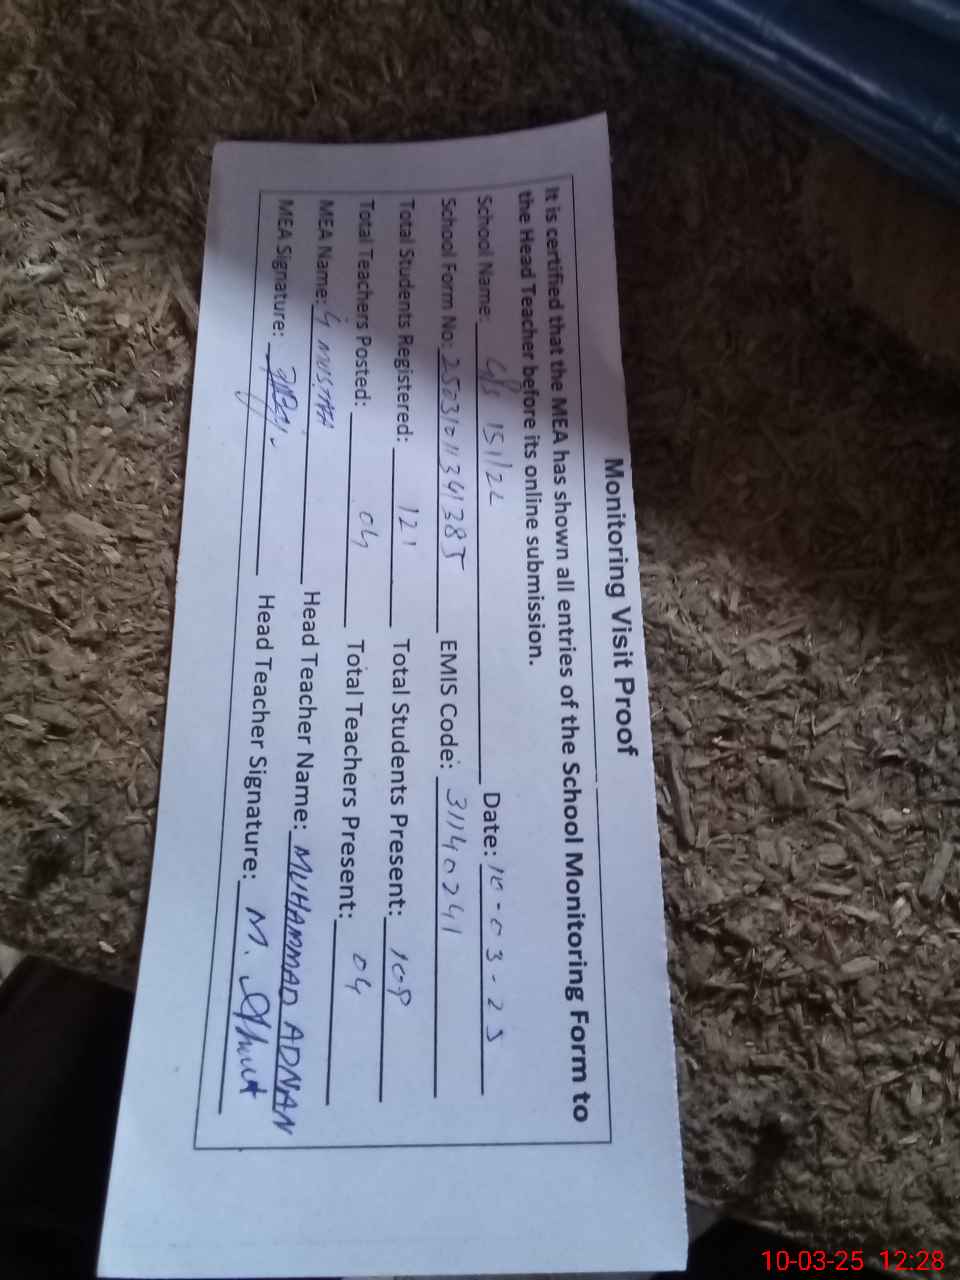 Monitoring Visit Proof
It is certified that the MEA has shown all entries of the School Monitoring Form to
the Head Teacher before its online submission.
School Name: GPS 151/2L Date: 10-03-25
School Form No: 25031011341385 EMIS Code: 31140241
Total Students Registered: 121 Total Students Present: 109
Total Teachers Posted: 04 Total Teachers Present: 04
MEA Name: G MUSTAFA Head Teacher Name: MUHAMMAD ADNAN
MEA Signature: Head Teacher Signature: M.
10-03-25 12:28